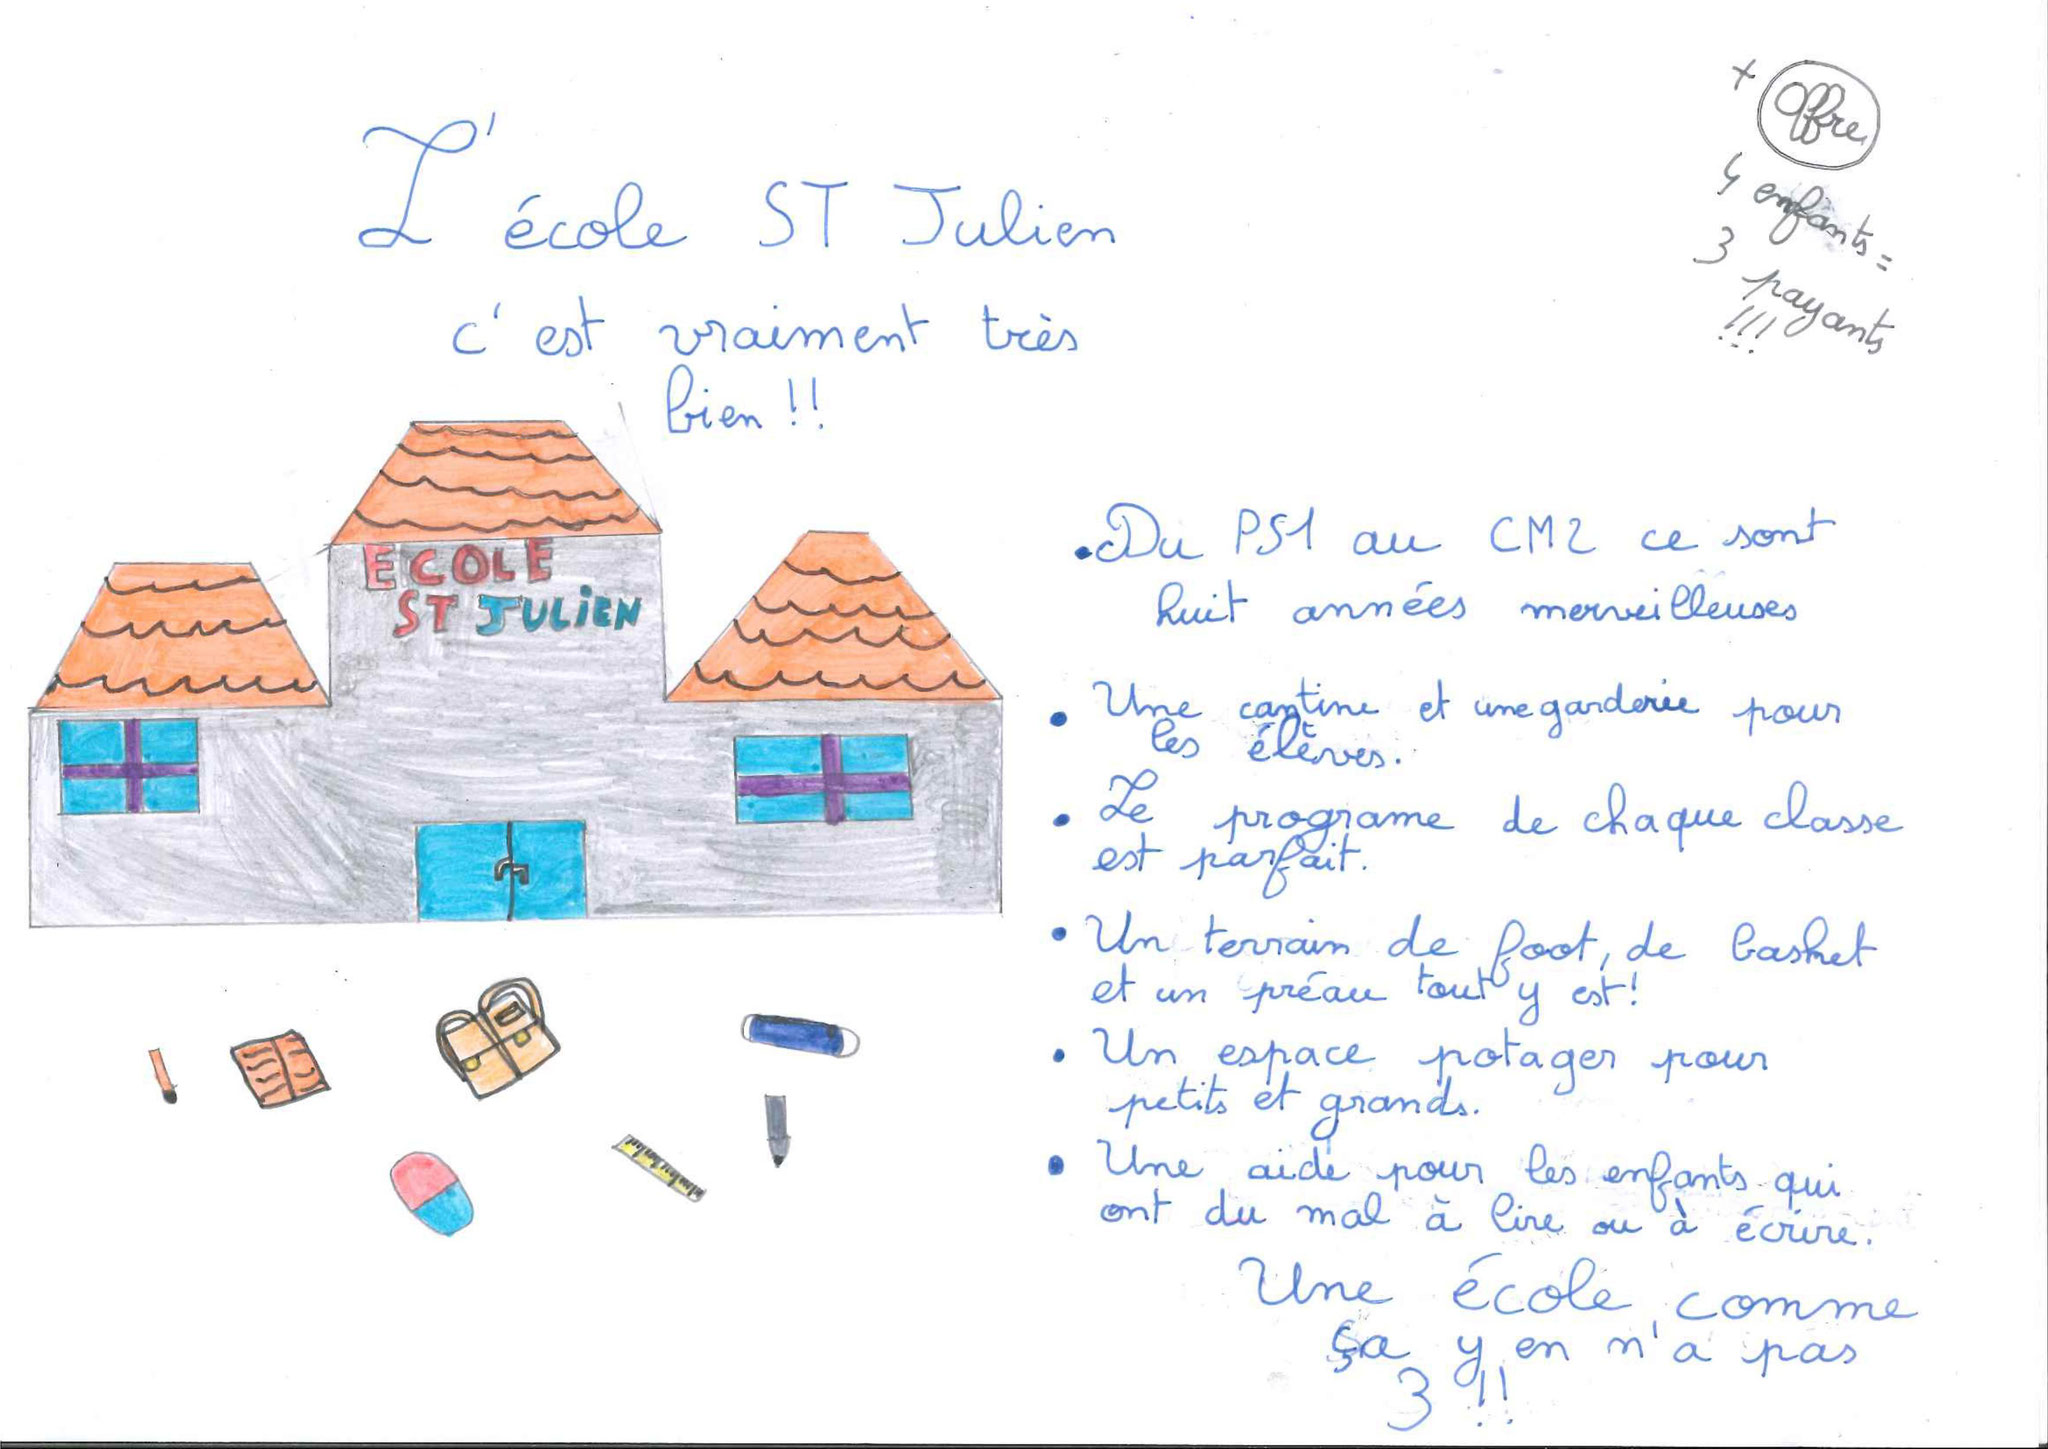 L'école ST Julien
c'est vraiment très
bien !!
+ Offre
4 enfants =
3 payants
!!!
ECOLE
ST JULiEN
• Du PS1 au CM2 ce sont
huit années merveilleuses
• Une cantine et une garderie pour
les élèves.
• Le programe de chaque classe
est parfait.
• Un terrain de foot, de basket
et un préau tout y est !
• Un espace potager pour
petits et grands.
• Une aide pour les enfants qui
ont du mal à lire ou à écrire.
Une école comme
ça y en n'a pas
3 !!